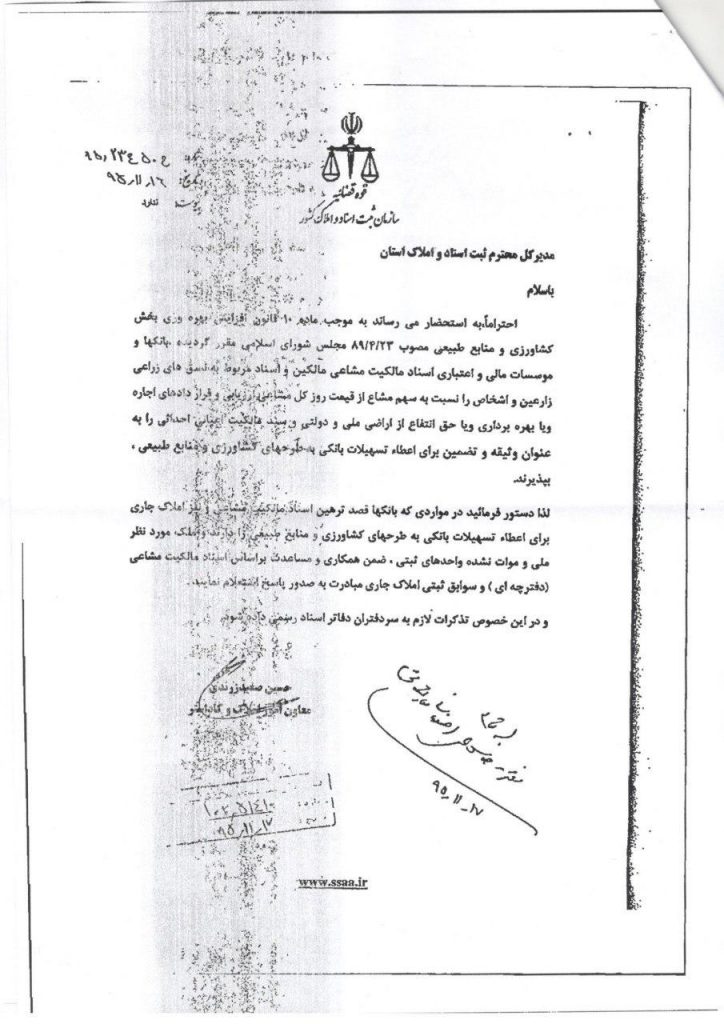 قوه قضائیه
سازمان ثبت اسناد و املاک کشور
تاریخ: ۹۵،۱۱،۱۶
پیوست: ندارد
مدیر کل محترم ثبت اسناد و املاک استان
باسلام
احتراماً،به استحضار می رساند به موجب ماده ۱۰ قانون افزایش بهره وری بخش
کشاورزی و منابع طبیعی مصوب ۸۹/۴/۲۳ مجلس شورای اسلامی مقرر گردیده ،بانکها و
موسسات مالی و اعتباری اسناد مالکیت مشاعی مالکین و اسناد مربوط به نسق های زراعی
زارعین و اشخاص را نسبت به سهم مشاع از قیمت روز کل مشاعی ارزیابی و قرار دادهای اجاره
ویا بهره برداری ویا حق انتفاع از اراضی ملی و دولتی و سند مالکیت اعیانی احداثی را به
عنوان وثیقه و تضمین برای اعطاء تسهیلات بانکی به طرحهای کشاورزی و منابع طبیعی ،
بپذیرند.
لذا دستور فرمائید در مواردی که بانکها قصد ترهین اسناد مالکیت مشاعی و نیز املاک جاری
برای اعطاء تسهیلات بانکی به طرحهای کشاورزی و منابع طبیعی را دارند و ملک مورد نظر
ملی و موات نشده واحدهای ثبتی ، ضمن همکاری و مساعدت براساس اسناد مالکیت مشاعی
(دفترچه ای ) و سوابق ثبتی املاک جاری مبادرت به صدور پاسخ استعلام نمایند.
و در این خصوص تذکرات لازم به سردفتران دفاتر اسناد رسمی داده شود.
حسین صفیدزرندی
معاون امور املاک و کاداستر
۹۵٫۱۱٫۱۷
۹۵٫۱۱٫۱۷
www.ssaa.ir